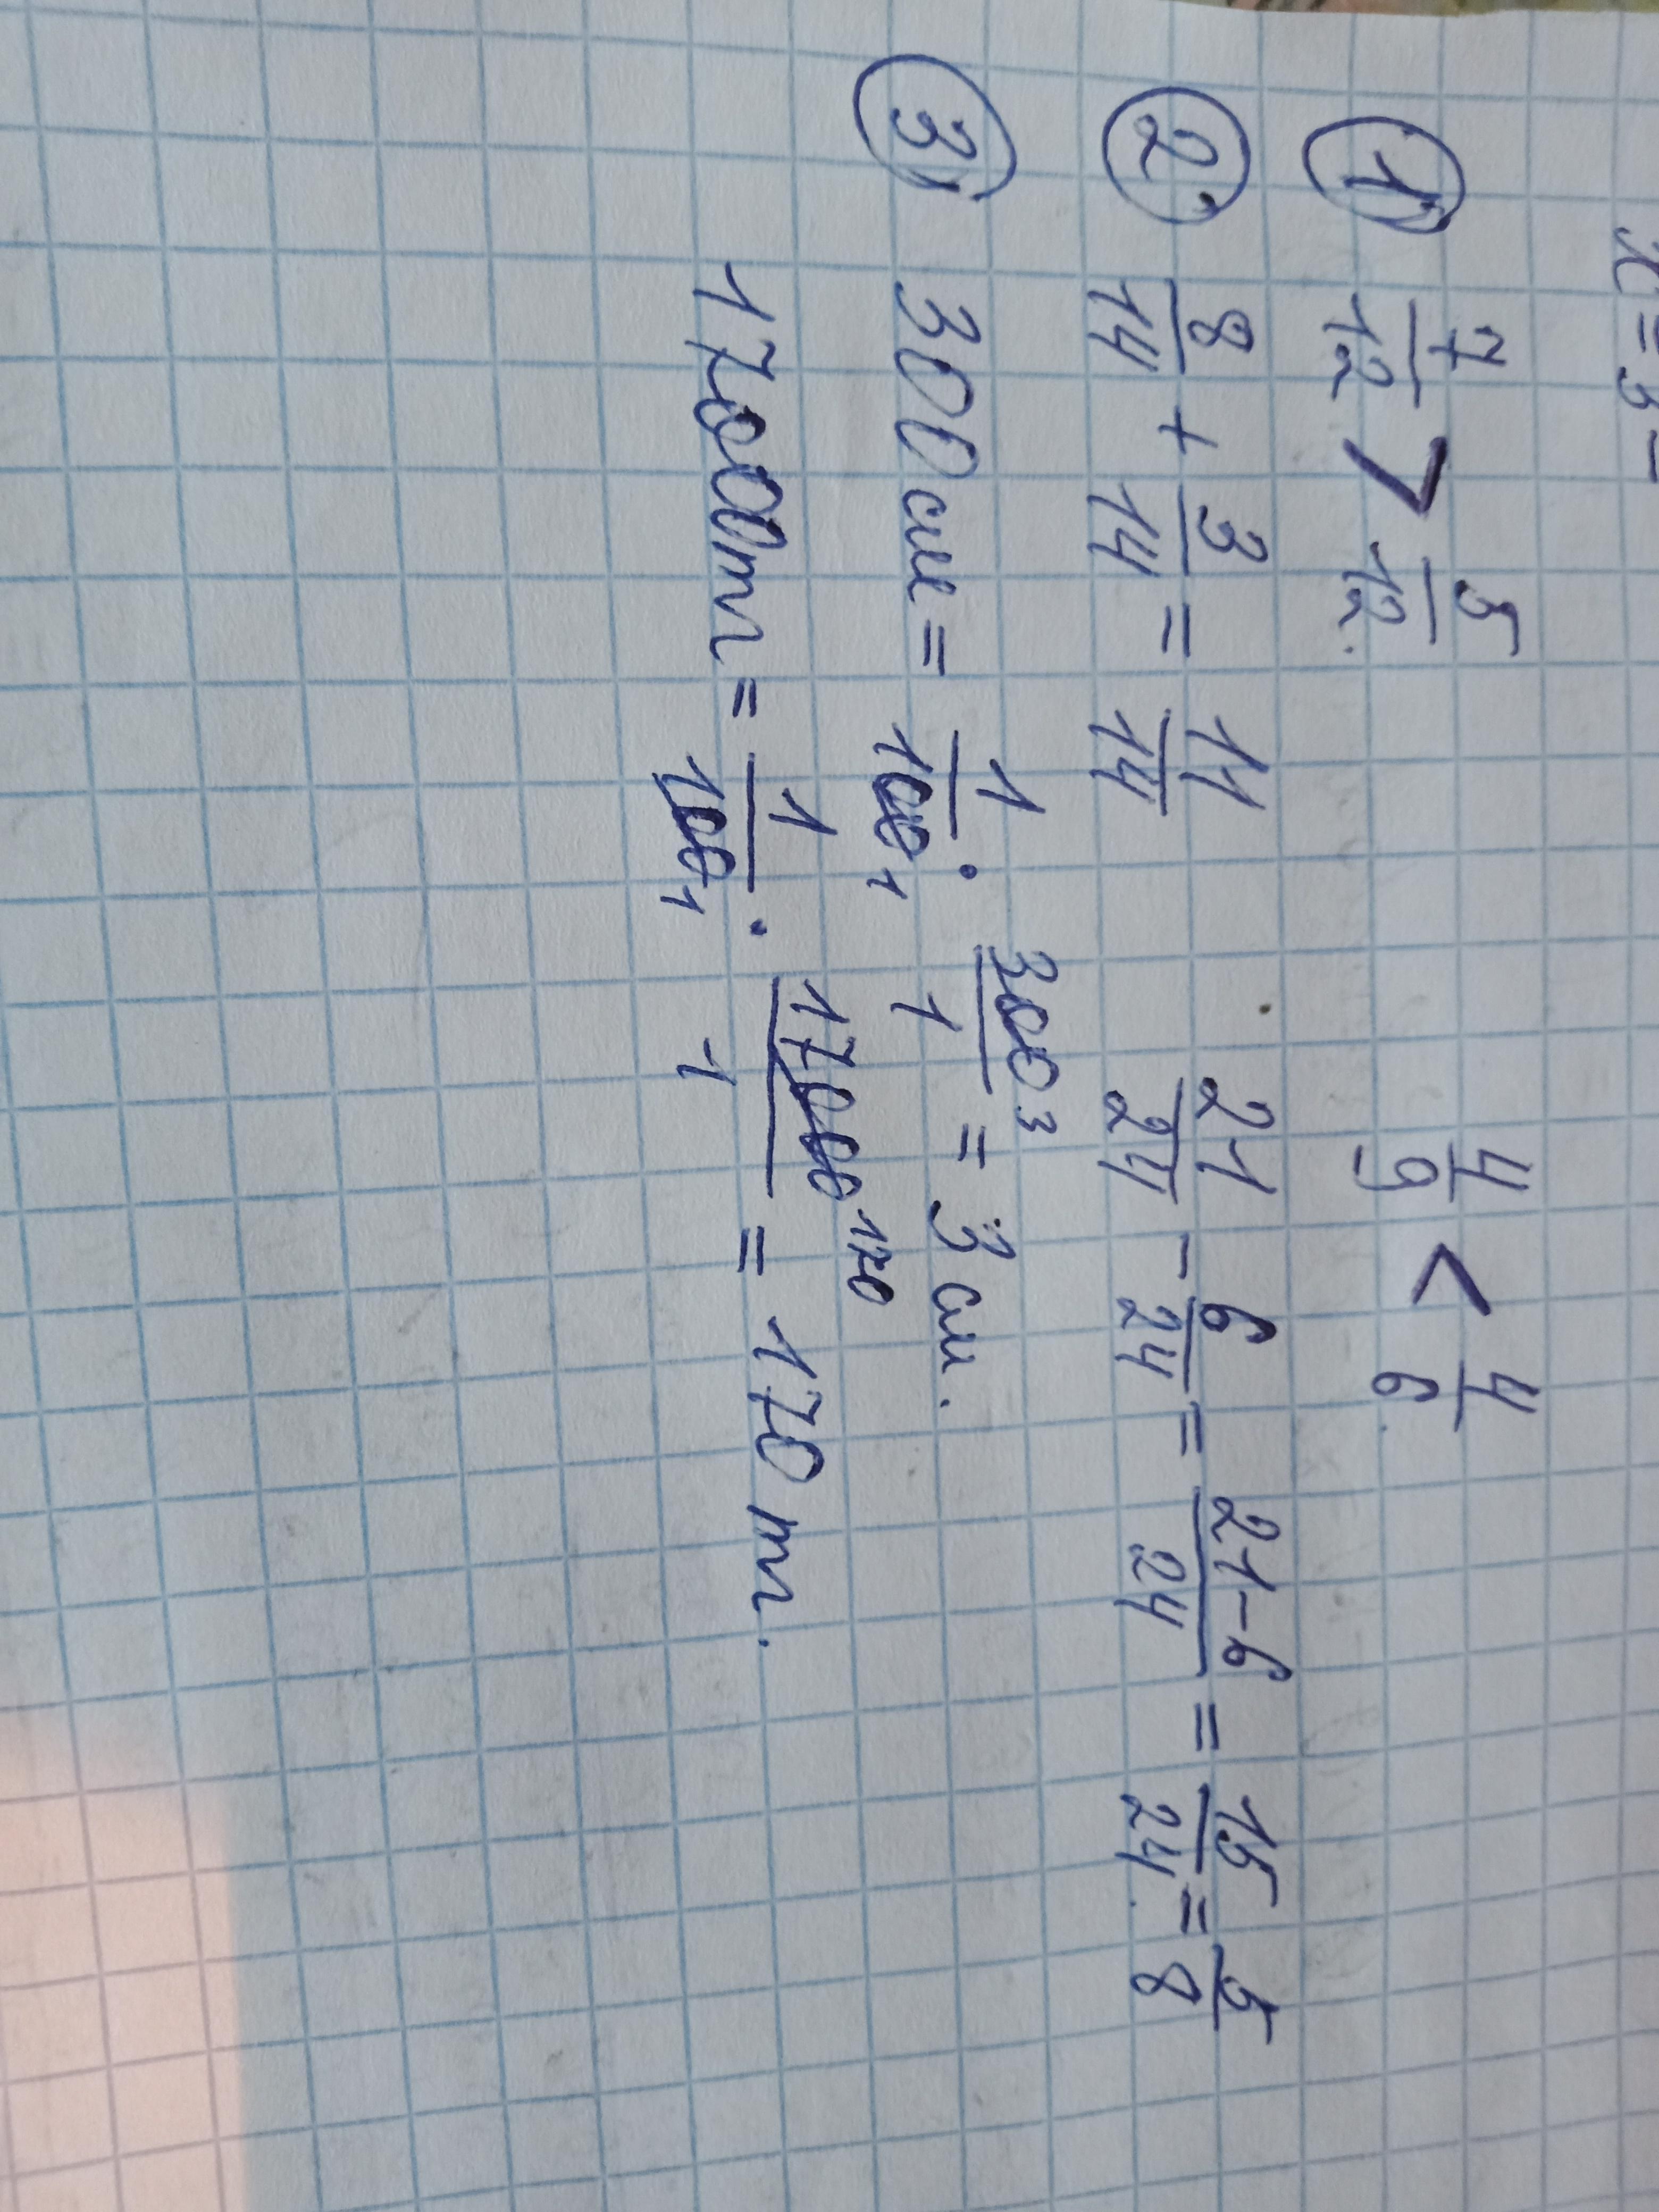 x = 3 -
1) 7/12 > 5/12. 4/9 < 4/6.
2) 8/14 + 3/14 = 11/14 21/24 - 6/24 = (21-6)/24 = 15/24 = 5/8
3) 300 см = 1/100 1 · 300 3/1 = 3 см.
17000 т = 1/100 1 · 17000 170/1 = 170 т.